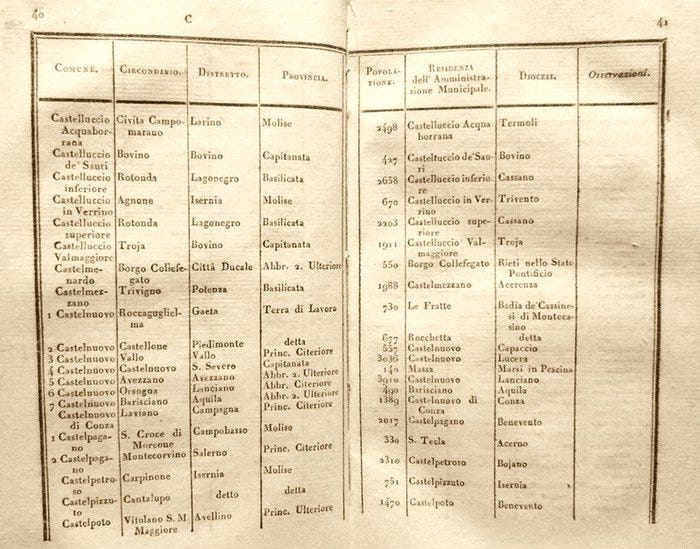 40
C
COMUNE. CIRCONDARIO. DISTRETTO. PROVINCIA.
Castelluccio Civita Campo- Larino Molise
Acquabor- marano
rana
Castelluccio Bovino Bovino Capitanata
de' Sauri
Castelluccio Rotonda Lagonegro Basilicata
inferiore
Castelluccio Agnone Isernia Molise
in Verrino
Castelluccio Rotonda Lagonegro Basilicata
superiore
Castelluccio Troja Bovino Capitanata
Valmaggiore
Castelme- Borgo Collefe- Città Ducale Abbr. 2. Ulteriore
nardo gato
Castelmez- Trivigno Potenza Basilicata
zano
1 Castelnuovo Roccagugliel- Gaeta Terra di Lavoro
ma
2 Castelnuovo Castellone Piedimonte detta
3 Castelnuovo Vallo Vallo Princ. Citeriore
4 Castelnuovo Castelnuovo S. Severo Capitanata
5 Castelnuovo Avezzano Avezzano Abbr. 2. Ulteriore
6 Castelnuovo Orsogna Lanciano Abbr. Citeriore
7 Castelnuovo Barisciano Aquila Abbr. 2. Ulteriore
Castelnuovo Laviano Campagna Princ. Citeriore
di Conza
1 Castelpaga- S. Croce di Campobasso Molise
no Morcone
2 Castelpaga- Montecorvino Salerno Princ. Citeriore
no
Castelpetro- Carpinone Isernia Molise
so
Castelpizzu- Cantalupo detto detta
to
Castelpoto Vitulano S. M. Avellino Princ. Ulteriore
Maggiore
41
POPOLA- RESIDENZA DIOCESI. Osservazioni.
ZIONE. dell' Amministra-
zione Municipale.
2498 Castelluccio Acqua Termoli
borrana
427 Castelluccio de'Sau- Bovino
ri
2658 Castelluccio inferio Cassano
re
670 Castelluccio in Ver- Trivento
rino
2203 Castelluccio supe- Cassano
riore
1911 Castelluccio Val- Troja
maggiore
550 Borgo Collefegato Rieti nello Stato
Pontificio
1988 Castelmezzano Acerenza
730 Le Fratte Badia de'Cassine-
si di Monteca-
sino
677 Rocchetta detta
557 Castelnuovo Capaccio
3036 Castelnuovo Lucera
140 Massa Marsi in Pescina
3910 Castelnuovo Lanciano
490 Barisciano Aquila
1389 Castelnuovo di Conza
Conza
2017 Castelpagano Benevento
330 S. Tecla Acerno
2310 Castelpetroso Bojano
751 Castelpizzuto Isernia
1470 Castelpoto Benevento